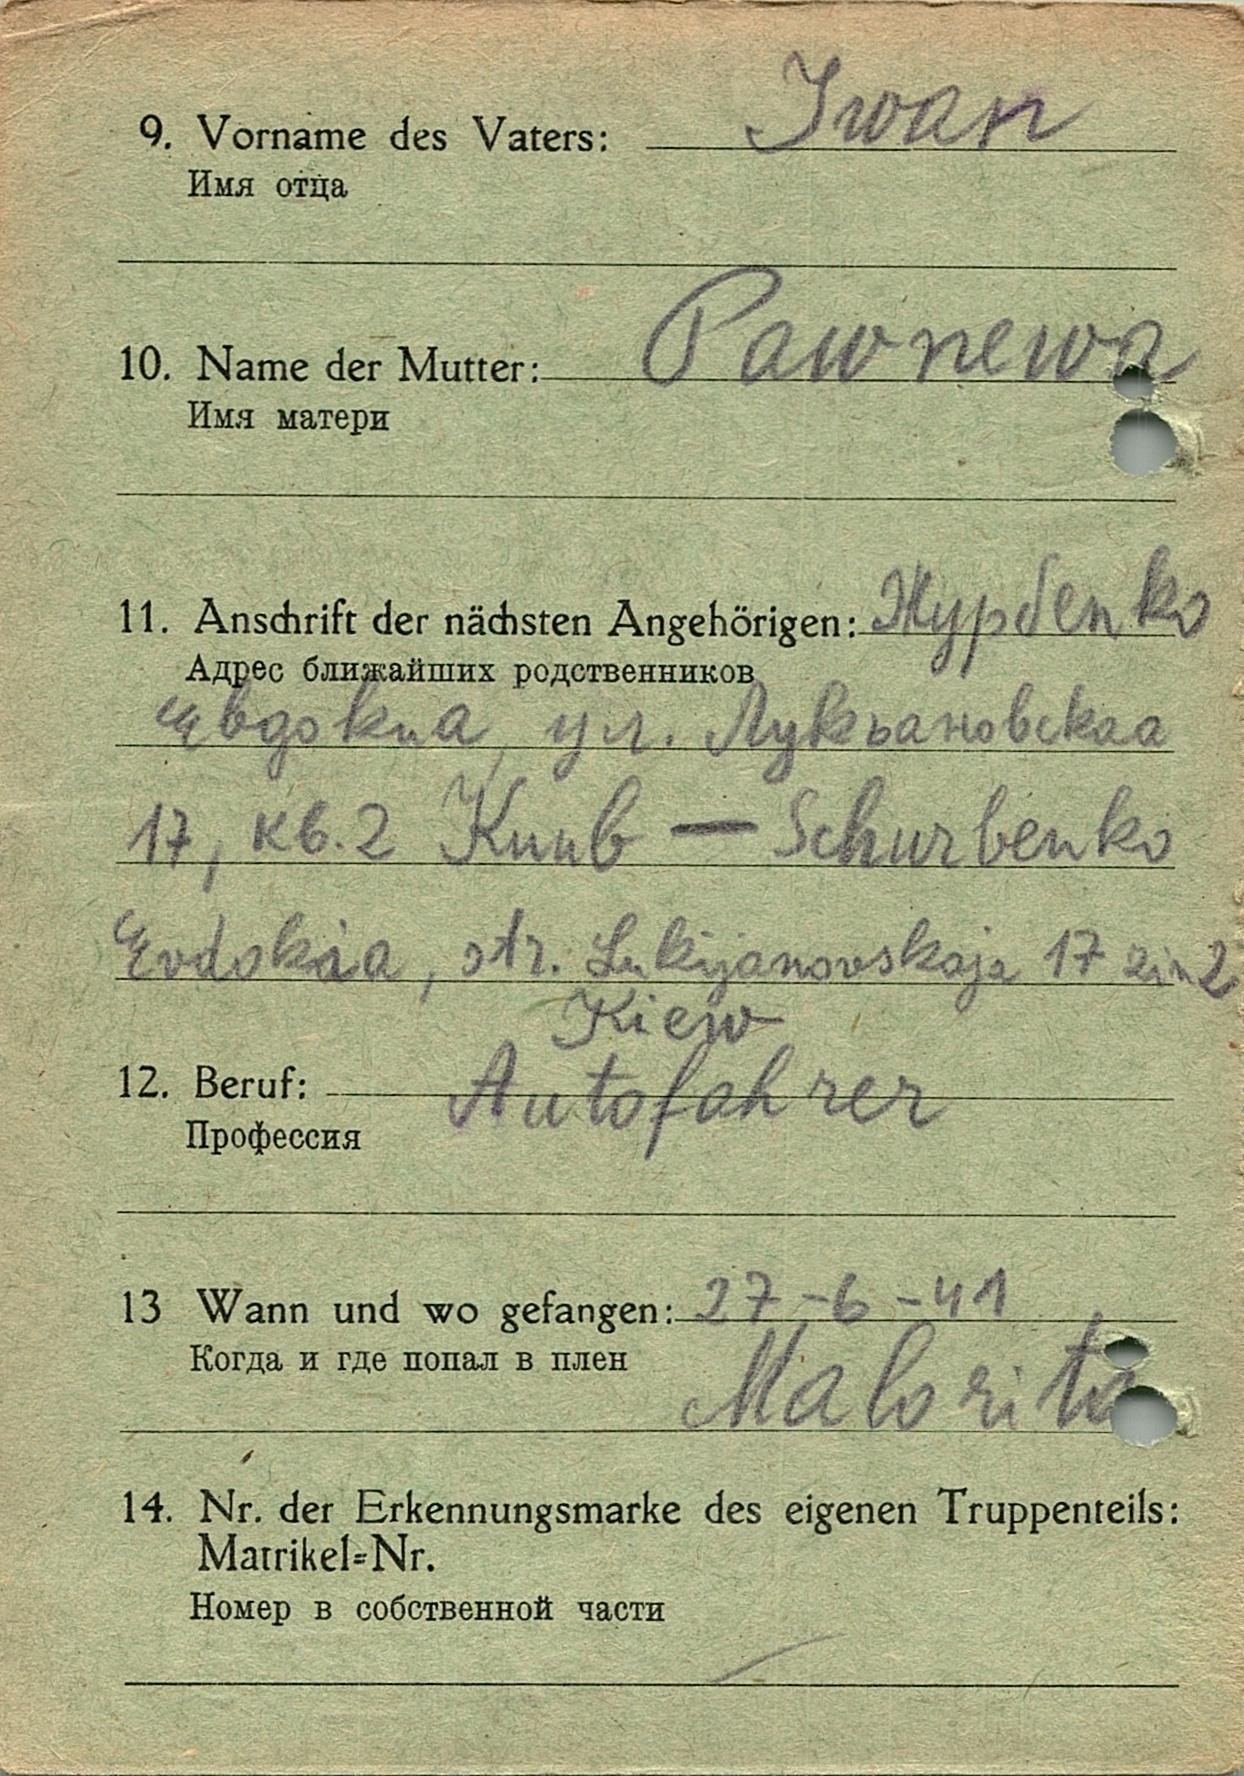 9. Vorname des Vaters: Iwan
Имя отца
10. Name der Mutter: Pawnewa
Имя матери
11. Anschrift der nächsten Angehörigen: Журбенко
Адрес ближайших родственников
Евдокиа, ул. Лукьановскаа
17, кв. 2 Киив — Schurbenko
Evdokia, str. Lukijanovskaja 17 zim 2
Kiew
12. Beruf: Autofahrer
Профессия
13 Wann und wo gefangen: 27-6-41
Когда и где попал в плен Malorita
14. Nr. der Erkennungsmarke des eigenen Truppenteils:
Matrikel=Nr.
Номер в собственной части